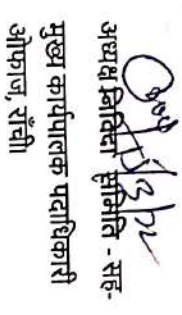 अध्यक्ष निविदा समिति - सह-
मुख्य कार्यपालक पदाधिकारी
ओफाज, राँची